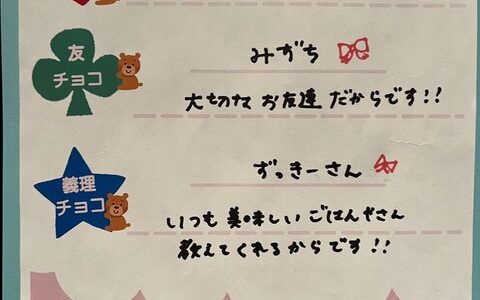 友
チョコ
みずち
大切な お友達 だからです!!
義理
チョコ
ずっきーさん
いつも 美味しい ごはんやさん
教えてくれるからです!!